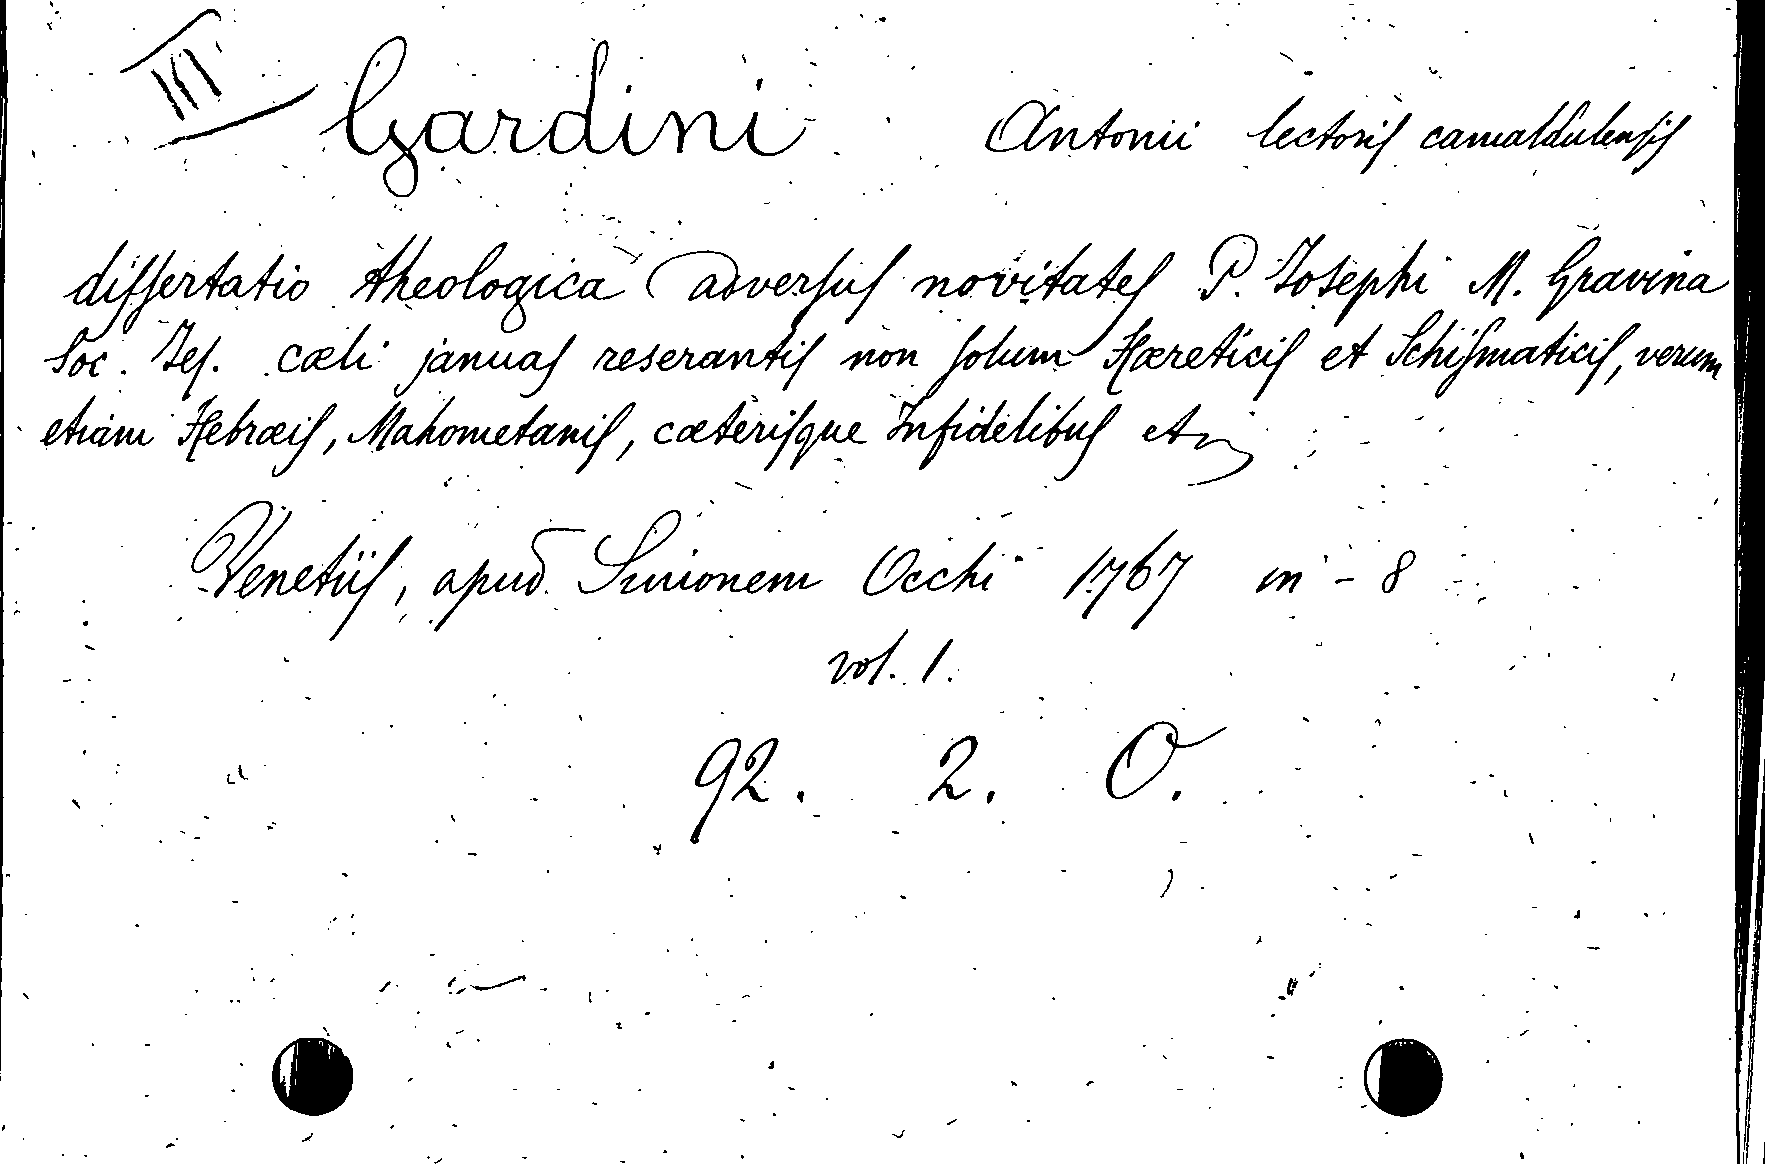 III Gardini Antonii lectoris camaldulensis
dissertatio theologica adversus novitates P. Josephi M. Gravina
Soc. Jes. cæli januas reserantis non solum Hæreticis et Schismaticis, verum
etiam Hebræis, Mahometanis, cæterisque Infidelibus etc
Venetiis, apud Simonem Occhi 1767 in-8
vol. 1.
92. 2. O.